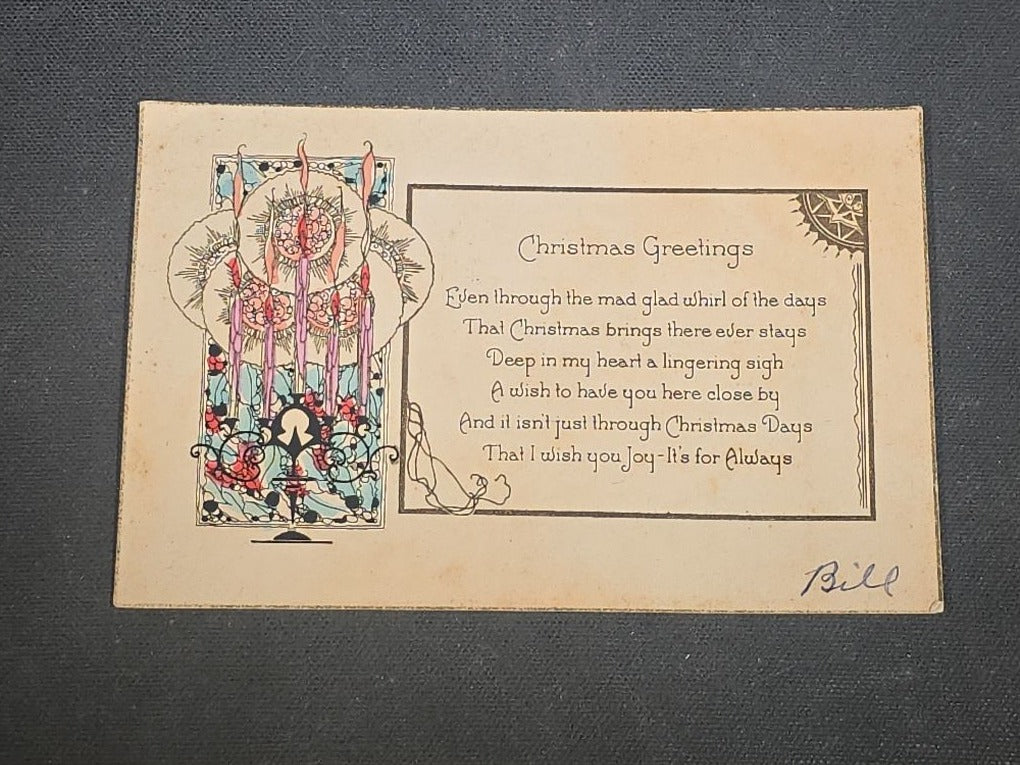 Christmas Greetings
Even through the mad glad whirl of the days
That Christmas brings there ever stays
Deep in my heart a lingering sigh
A wish to have you here close by
And it isn't just through Christmas Days
That I wish you Joy-It's for Always
Bill